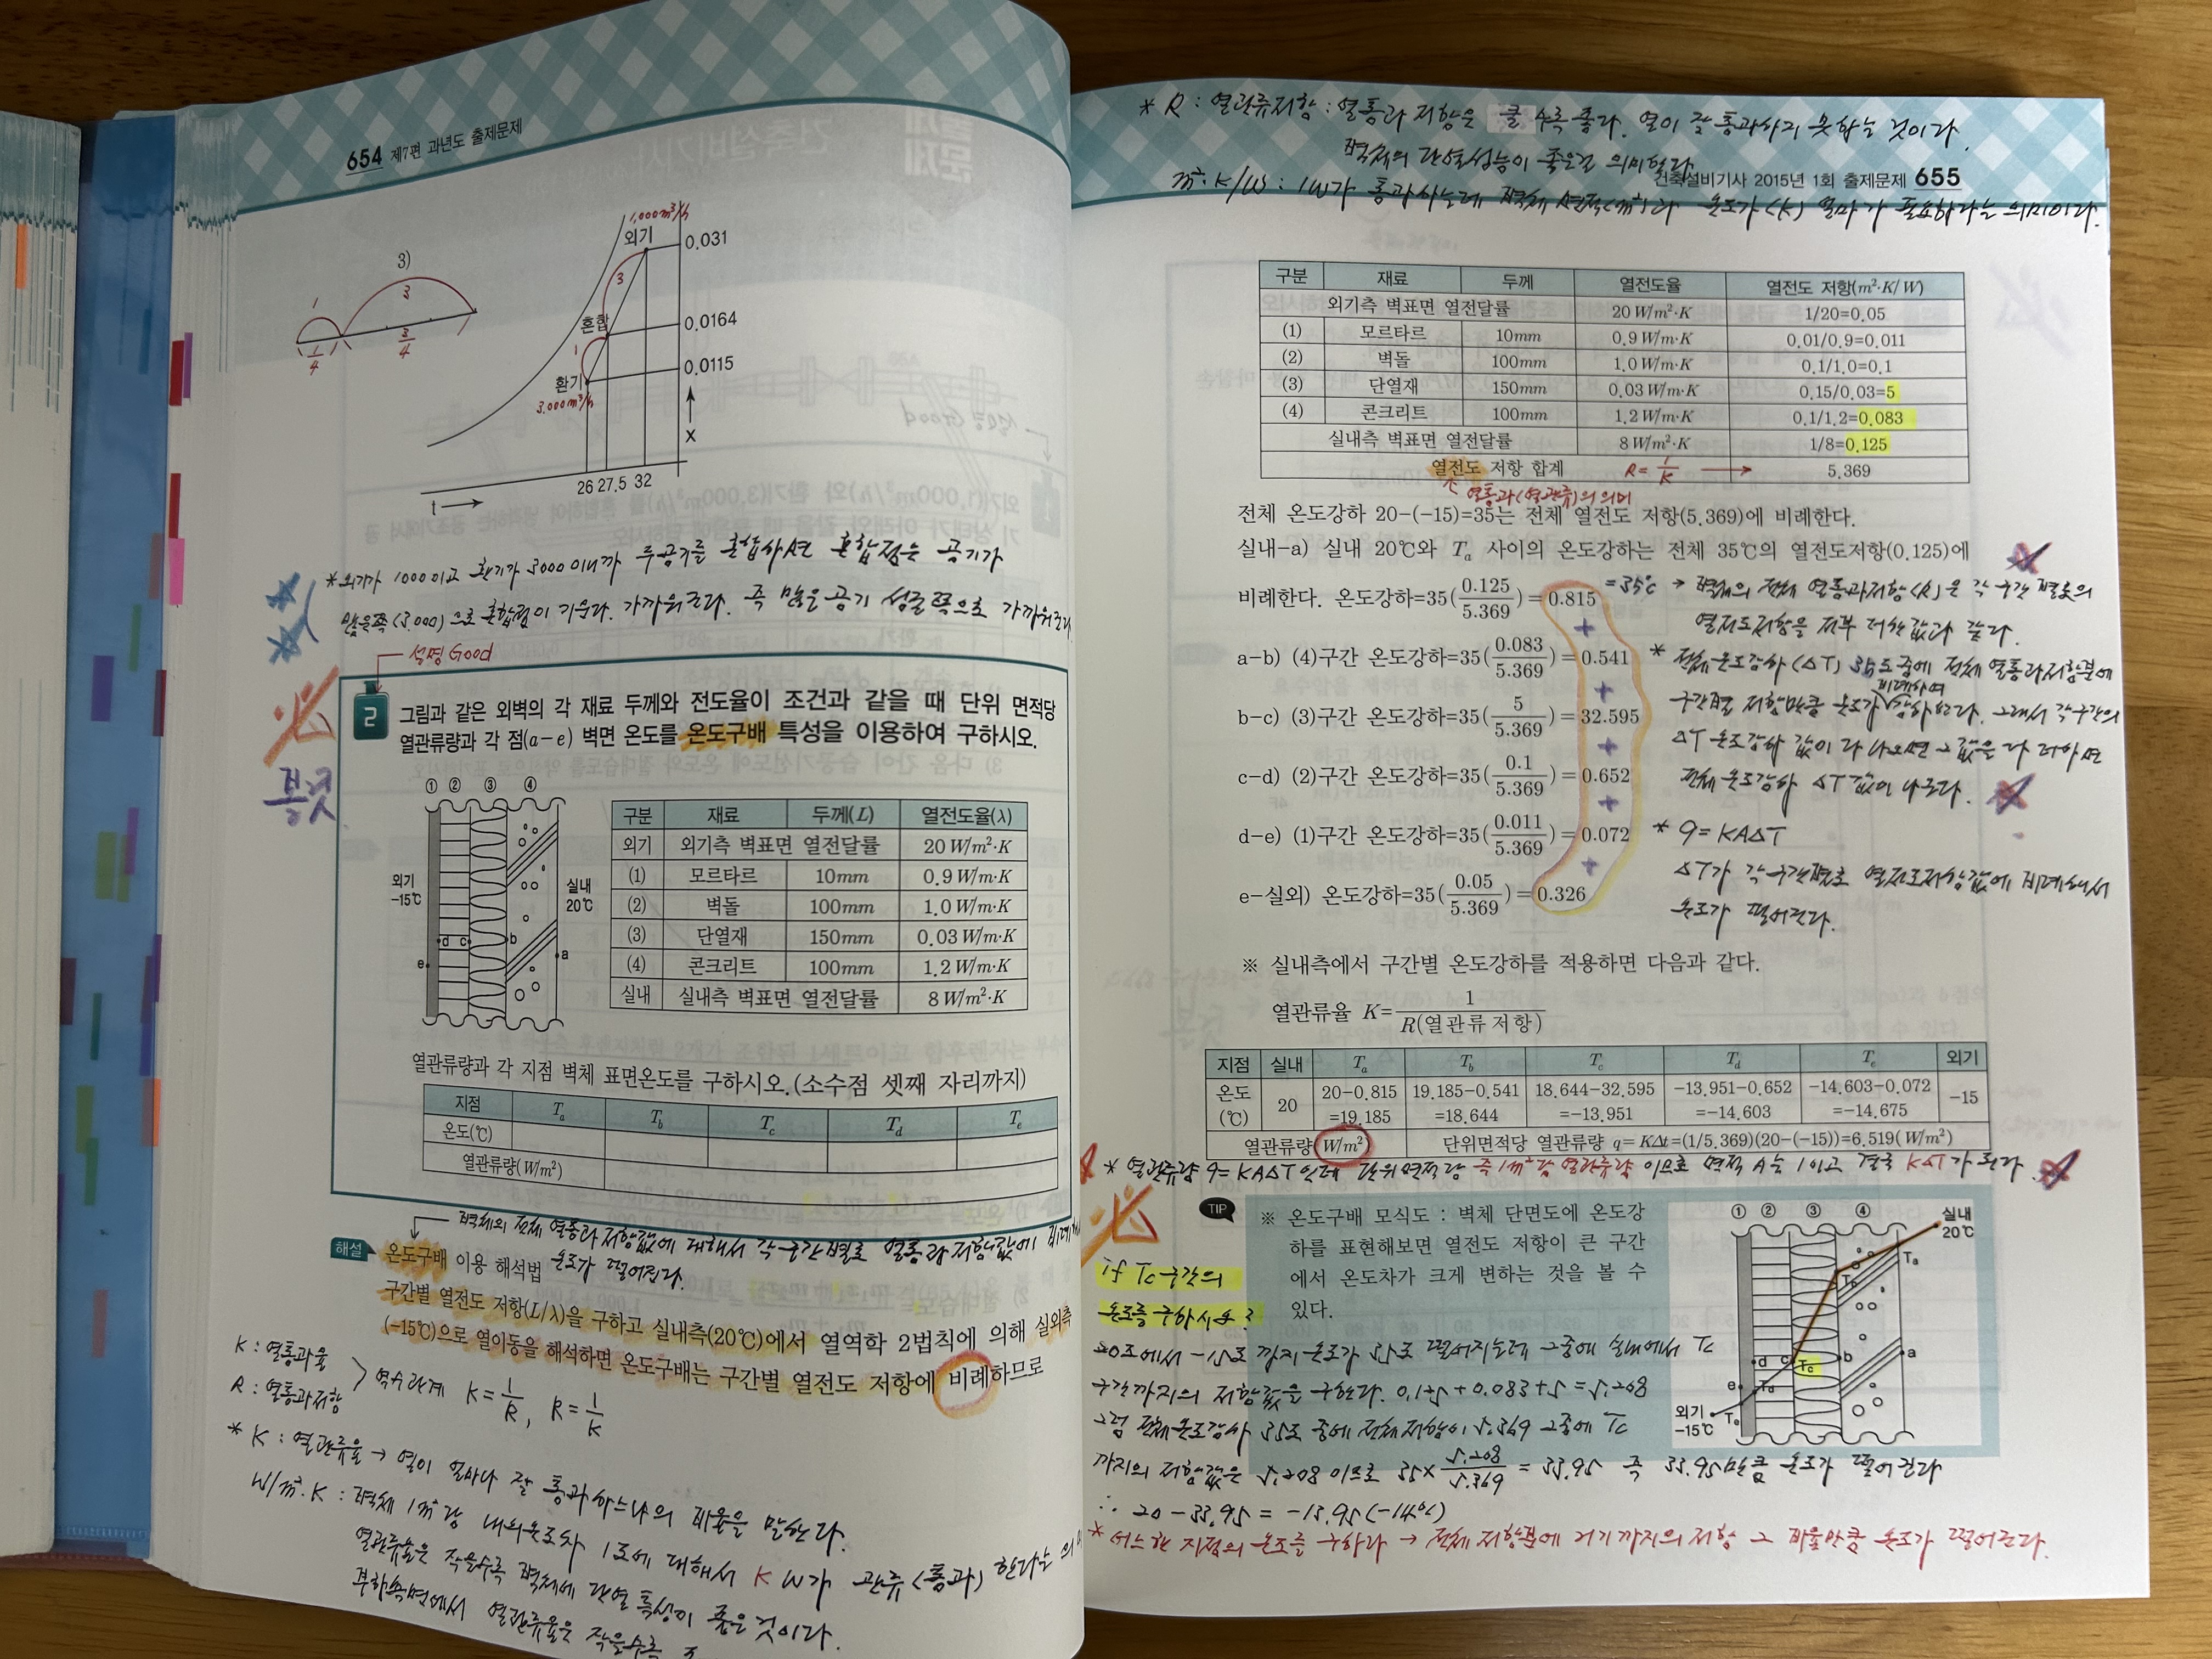 654 제7편 과년도 출제문제
3)
1
3
1/4
3/4
1,000m³/h
외기
0.031
3
혼합
0.0164
1
환기
0.0115
3.000m³/h
x
26 27.5 32
t
* 외기가 1000이고 환기가 3000이니까 두공기를 혼합하면 혼합점은 공기가
많은쪽(3.000)으로 혼합점이 기운다. 가까워진다. 즉 많은공기 성질쪽으로 가까워진다
설명 Good
必
볼것
2 그림과 같은 외벽의 각 재료 두께와 전도율이 조건과 같을 때 단위 면적당
열관류량과 각 점(a-e) 벽면 온도를 온도구배 특성을 이용하여 구하시오.
① ② ③ ④
외기 -15℃
실내 20℃
e d c b a
구분 재료 두께(L) 열전도율(λ)
외기 외기측 벽표면 열전달률 20 W/m²·K
(1) 모르타르 10mm 0.9 W/m·K
(2) 벽돌 100mm 1.0 W/m·K
(3) 단열재 150mm 0.03 W/m·K
(4) 콘크리트 100mm 1.2 W/m·K
실내 실내측 벽표면 열전달률 8 W/m²·K
열관류량과 각 지점 벽체 표면온도를 구하시오.(소수점 셋째 자리까지)
지점 Ta Tb Tc Td Te
온도(℃)
열관류량(W/m²)
벽체의 전체 열통과 저항값에 대해서 각 구간별로 열통과 저항값에
온도가 떨어진다.
해설 온도구배 이용 해석법
구간별 열전도 저항(L/λ)을 구하고 실내측(20℃)에서 열역학 2법칙에 의해 실외측
(-15℃)으로 열이동을 해석하면 온도구배는 구간별 열전도 저항에 비례하므로
K : 열통과율
R : 열통과저항
역수관계 K=1/R, R=1/K
* K : 열관류율 → 열이 얼마나 잘 통과하느냐의 비율을 말한다.
W/m².K : 벽체 1m²당 내외온도차 1도에 대해서 K W가 관류(통과)한다는
열관류율은 작을수록 벽체에 단열 특성이 좋은것이다.
부하측면에서 열관류율은 작을수록
* R : 열관류저항 : 열통과 저항은 클 수록 좋다. 열이 잘 통과하지 못하는 것이다.
벽체의 단열성능이 좋은걸 의미한다.
m².K/W : 1W가 통과하는데 벽체 면적(m²)과 온도가(K) 얼마가 필요하다는 의미이다.
건축설비기사 2015년 1회 출제문제 655
구분 재료 두께 열전도율 열전도 저항(m²·K/W)
외기측 벽표면 열전달률 20 W/m²·K 1/20=0.05
(1) 모르타르 10mm 0.9 W/m·K 0.01/0.9=0.011
(2) 벽돌 100mm 1.0 W/m·K 0.1/1.0=0.1
(3) 단열재 150mm 0.03 W/m·K 0.15/0.03=5
(4) 콘크리트 100mm 1.2 W/m·K 0.1/1.2=0.083
실내측 벽표면 열전달률 8 W/m²·K 1/8=0.125
열전도 저항 합계 R=1/K → 5.369
열통과(열관류)의 의미
전체 온도강하 20-(-15)=35는 전체 열전도 저항(5.369)에 비례한다.
실내-a) 실내 20℃와 Ta 사이의 온도강하는 전체 35℃의 열전도저항(0.125)에
비례한다. 온도강하=35(0.125/5.369)=0.815
a-b) (4)구간 온도강하=35(0.083/5.369)=0.541
b-c) (3)구간 온도강하=35(5/5.369)=32.595
c-d) (2)구간 온도강하=35(0.1/5.369)=0.652
d-e) (1)구간 온도강하=35(0.011/5.369)=0.072
e-실외) 온도강하=35(0.05/5.369)=0.326
+
+
+
+
+
=35℃ → 벽체의 전체 열통과저항(R)은 각 구간 별로의
열전도저항을 전부 더한값과 같다.
* 전체온도강하(ΔT) 35도중에 전체 열통과저항분에
구간별 저항만큼 온도가 비례하여 강하된다. 그래서 각구간의
ΔT 온도강하 값이 다 나오면 그 값을 다 더하면
전체 온도강하 ΔT 값이 나온다.
* q=KAΔT
ΔT가 각 구간별로 열전도저항값에 비례해서
온도가 떨어진다.
※ 실내측에서 구간별 온도강하를 적용하면 다음과 같다.
열관류율 K=1/R(열관류저항)
지점 실내 Ta Tb Tc Td Te 외기
온도(℃) 20 20-0.815=19.185 19.185-0.541=18.644 18.644-32.595=-13.951 -13.951-0.652=-14.603 -14.603-0.072=-14.675 -15
열관류량 W/m² 단위면적당 열관류량 q=KΔt=(1/5.369)(20-(-15))=6.519(W/m²)
* 열관류량 q=KAΔT 인데 단위면적당 즉 1m²당 열관류량 이므로 면적 A는 1이고 결국 KΔT가 된다.
必
TIP ※ 온도구배 모식도 : 벽체 단면도에 온도강
하를 표현해보면 열전도 저항이 큰 구간
에서 온도차가 크게 변하는 것을 볼 수
있다.
① ② ③ ④
실내 20℃
Ta
Tb
Tc
Td
Te
e d b a
외기 -15℃
if Tc 구간의
온도를 구하시오?
20도에서 -15도 까지 온도가 35도 떨어지는데 그중에 실내에서 Tc
구간까지의 저항값을 구한다. 0.125+0.083+5=5.208
그럼 전체온도강하 35도 중에 전체저항이 5.369 그중에 Tc
까지의 저항값은 5.208 이므로 35×5.208/5.369=33.95 즉 33.95만큼 온도가 떨어진다
∴ 20-33.95=-13.95(-14℃)
* 어느한 지점의 온도를 구하라 → 전체 저항분에 거기까지의 저항 그 비율만큼 온도가 떨어진다.